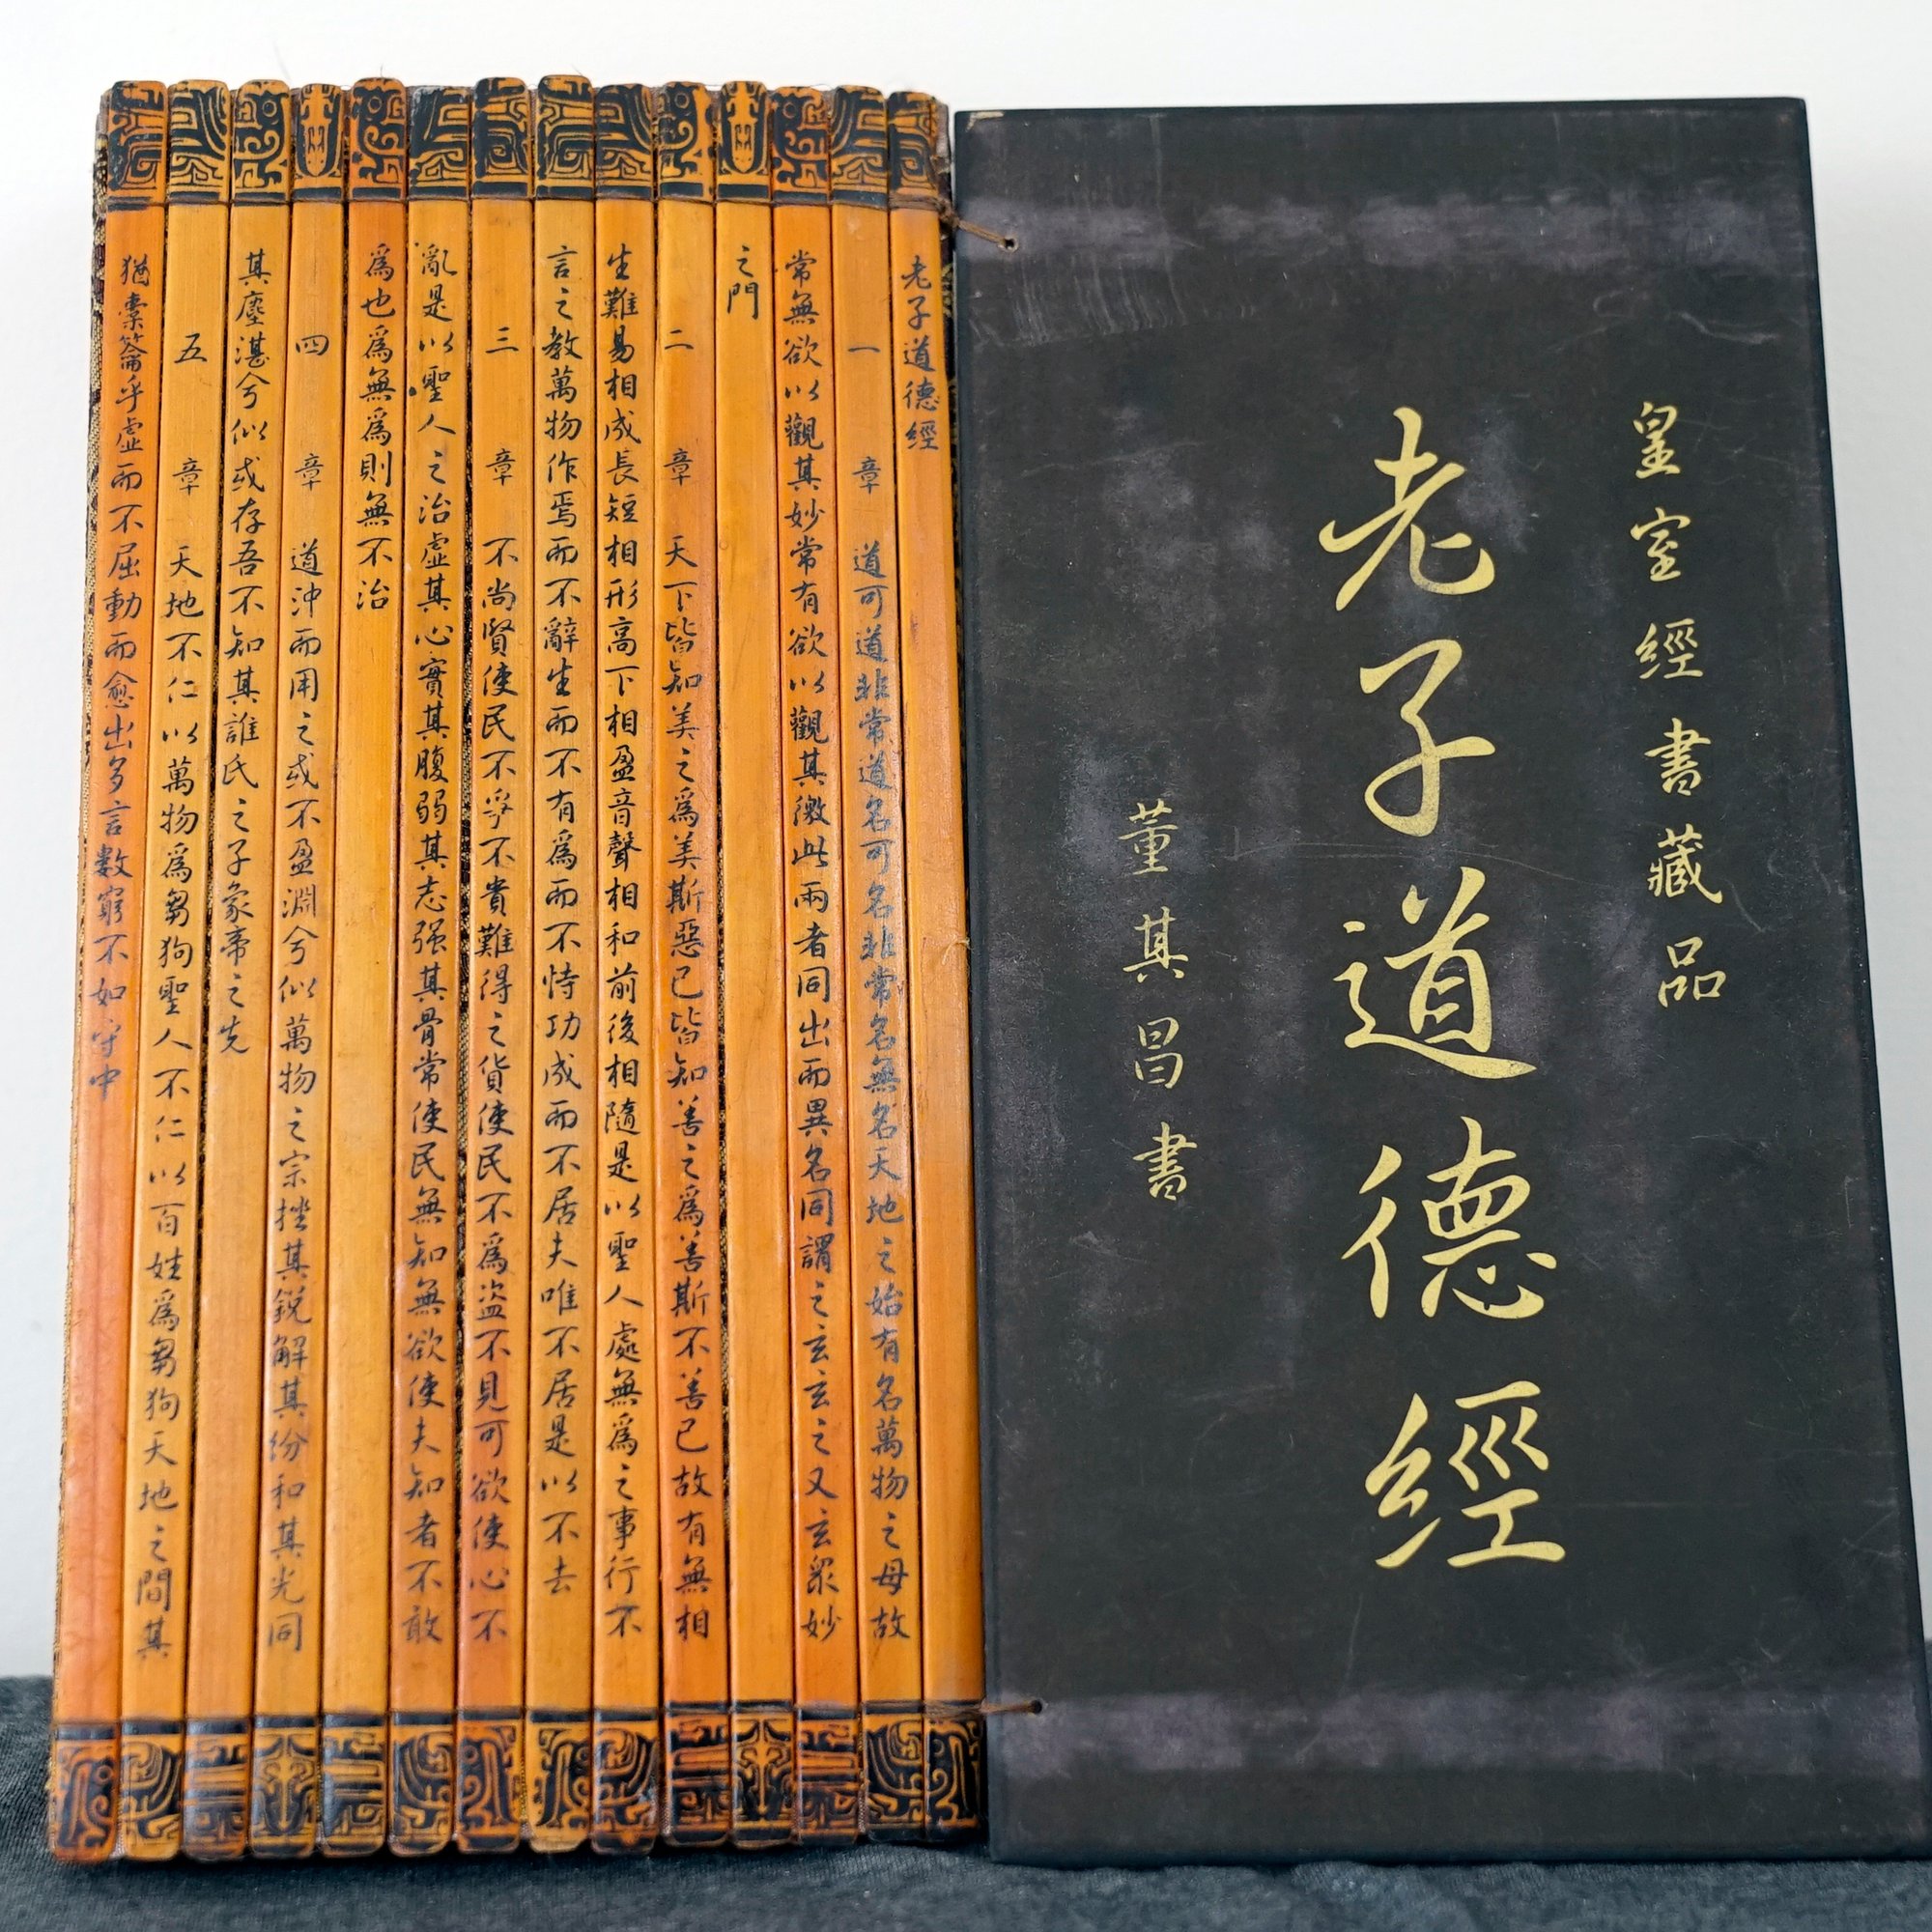 皇室經書藏品
老子道德經
董其昌書
老子道德經
一章 道可道非常道名可名非常名無名天地之始有名萬物之母故
常無欲以觀其妙常有欲以觀其徼此兩者同出而異名同謂之玄玄之又玄衆妙
之門
二章 天下皆知美之爲美斯惡已皆知善之爲善斯不善已故有無相
生難易相成長短相形高下相盈音聲相和前後相隨是以聖人處無爲之事行不
言之教萬物作焉而不辭生而不有爲而不恃功成而不居夫唯不居是以不去
三章 不尚賢使民不爭不貴難得之貨使民不爲盗不見可欲使心不
亂是以聖人之治虛其心實其腹弱其志强其骨常使民無知無欲使夫知者不敢
爲也爲無爲則無不治
四章 道沖而用之或不盈淵兮似萬物之宗挫其銳解其紛和其光同
其塵湛兮似或存吾不知其誰氏之子象帝之先
五章 天地不仁以萬物爲芻狗聖人不仁以百姓爲芻狗天地之間其
猶橐籥乎虛而不屈動而愈出多言數窮不如守中